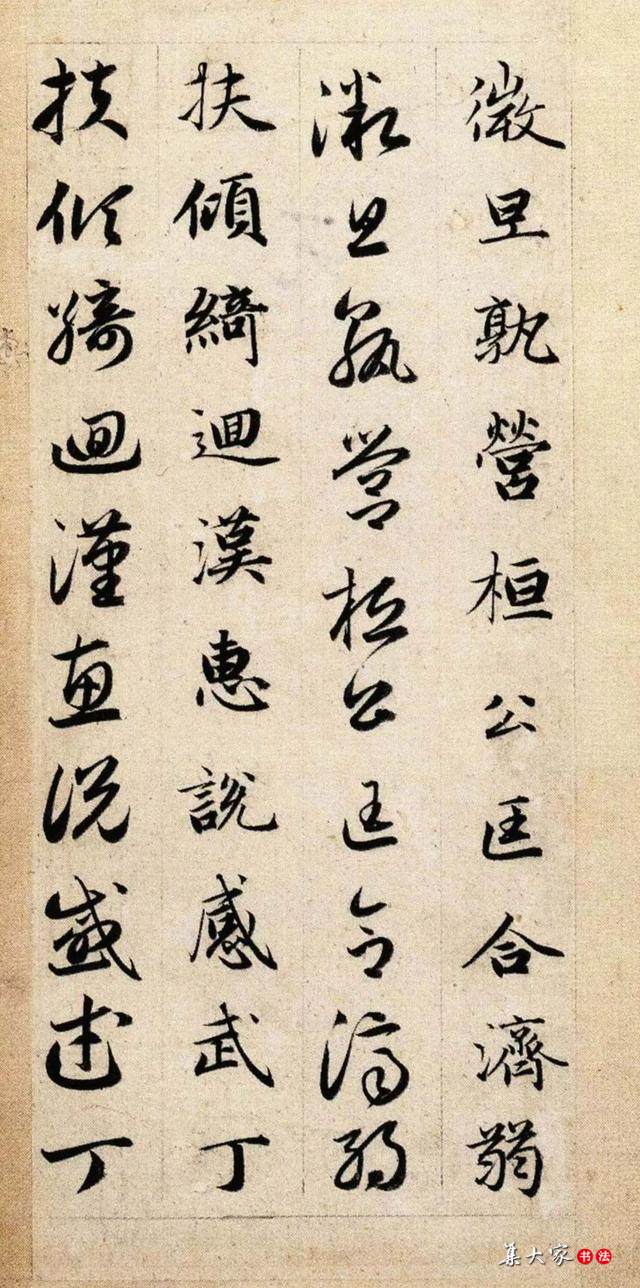 微旦孰營桓公匡合濟弱
微旦孰營桓公匡合濟弱
扶傾綺迴漢惠說感武丁
扶傾綺迴漢惠說感武丁
集大家书法